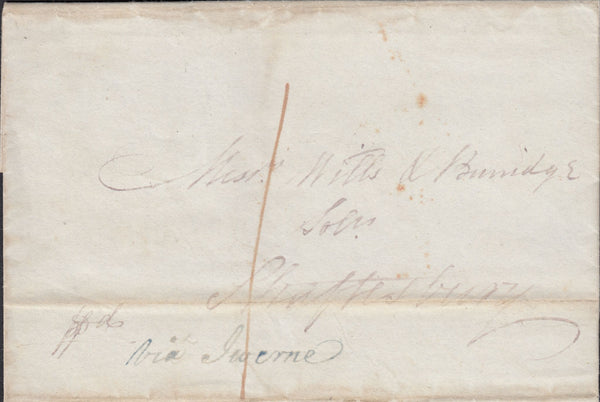 1
Messrs Wills & Burridge
Solrs
Shaftesbury
ppd
via Iwerne